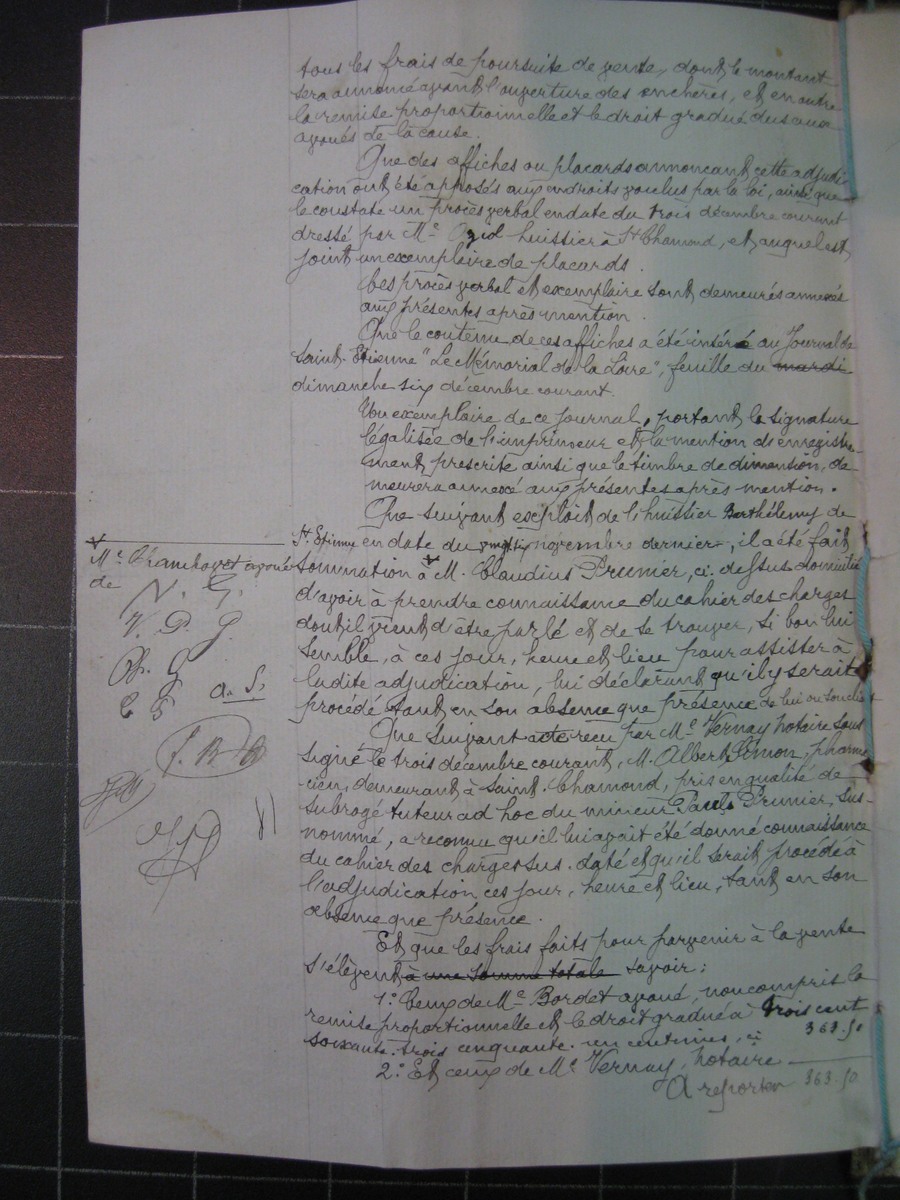 tous les frais de poursuite de vente, dont le montant
sera annoncé avant l'ouverture des enchères, et en outre
la remise proportionnelle et le droit gradué dus aux
avoués de la cause.
Que des affiches ou placards annoncant cette adjudi-
cation ont été apposés aux endroits voulus par la loi, ainsi que
le constate un procès verbal en date du trois décembre courant
dressé par Me Ogiol huissier à St Chamond, et auquel est
joint un exemplaire de placards.
Ces procès verbal et exemplaire sont demeurés annexés
aux présentes après mention.
Que le contenu de ces affiches a été inséré au Journal de
Saint-Etienne "Le Mémorial de la Loire", feuille du mardi
dimanche six décembre courant.
Un exemplaire de ce journal, portant la signature
légalisée de l'imprimeur et la mention d'enregistre-
ment prescrite ainsi que le timbre de dimension, de
meurera annexé aux présentes après mention.
Que suivant exploit de l'huissier Barthélemy de
St Etienne en date du novembre dernier, il a été fait
sommation à M. Claudius Prunier, ci-dessus domicilié
d'avoir à prendre connaissance du cahier des charges
dont il vient d'être parlé et de se trouver, si bon lui
semble, à ces jour, heure et lieu pour assister à
ladite adjudication, lui déclarant qu'il y serait
procédé tant en son absence que présence de lui ou
Que suivant acte recu par Me Vernay notaire sous
signé le trois décembre courant, M. Albert Simon, pharma
cien, demeurant à Saint-Chamond, pris en qualité de
subrogé tuteur ad hoc du mineur Paul Prunier, sus-
nommé, a reconnu qu'il lui avait été donné connaissance
du cahier des charges sus-daté et qu'il serait procédé à
l'adjudication, ces jour, heure et lieu, tant en son
absence que présence.
Et que les frais faits pour parvenir à la vente
s'élèvent à une somme totale savoir:
1° Ceux de Me Bordet avoué, non compris la
remise proportionnelle et le droit gradué à trois cent
soixante-trois cinquante un centimes, ci 363.50
2° Et ceux de Me Vernay, notaire
A reporter 363.50
Me avoué
de
N. G.
V. P. G
a. S.